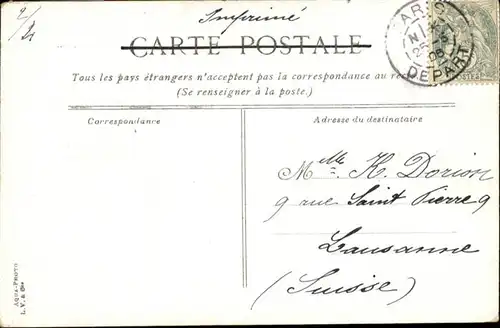 2/4
Imprimé
CARTE POSTALE
Tous les pays étrangers n'acceptent pas la correspondance au recto
(Se renseigner à la poste.)
PARIS
DEPART
Correspondance
Adresse du destinataire
Mlle K. Dorion
9 rue Saint Pierre 9
Lausanne
(Suisse)
AQUA-PHOTO
L. V. & Cie